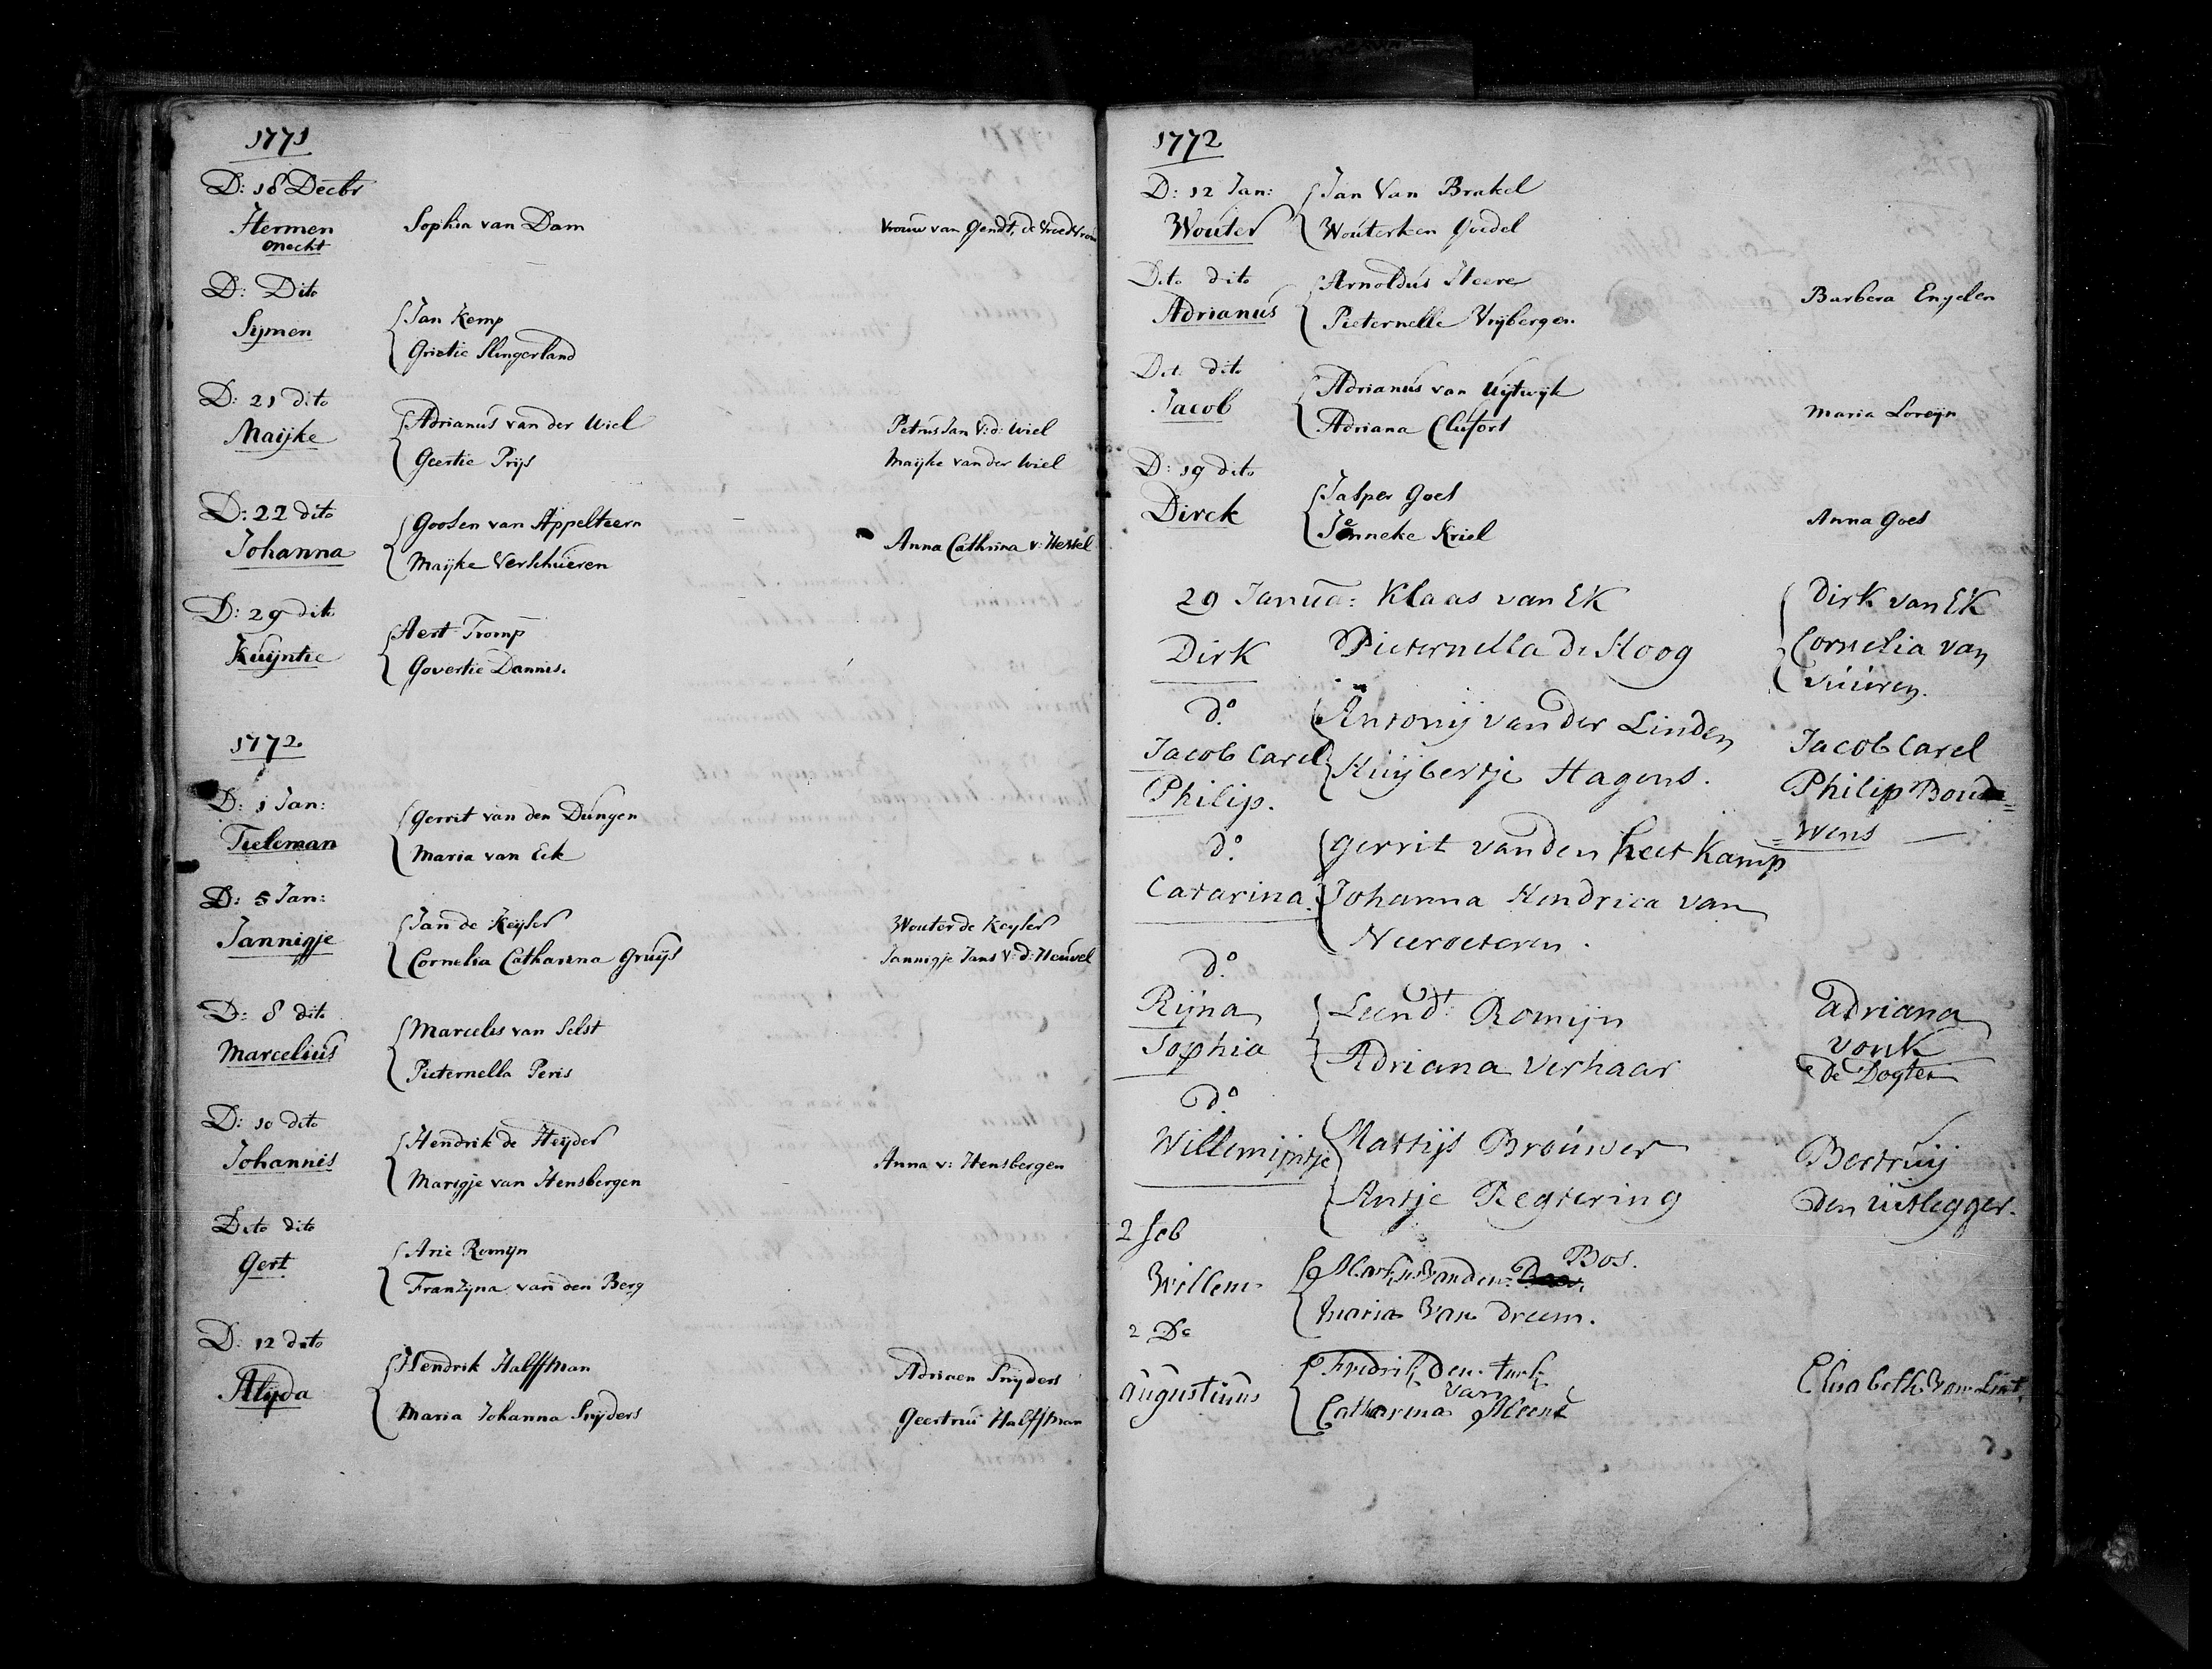 1771
D: 18 Decbr
Hermen Sophia van Dam Vrouw van Gendt, de Vroedvrou
onecht
D: Dito
Sijmen Jan Kemp
Grietie Slingerland
D: 21 dito
Maijke Adrianus van der Wiel Petrus Jan V:d: Wiel
Geertie Prijs Maijke van der Wiel
D: 22 dito
Johanna Goosen van Appelteern Anna Cathrina v: Hessel
Maijke Verschueren
D: 29 dito
Kuijntie Aert Tromp
Govertie Dannis.
1772
D: 1 Jan:
Tieleman Gerrit van den Dungen
Maria van Eck
D: 5 Jan:
Jannigje Jan de Keijser Wouter de Keyser
Cornelia Catharina Gruijs Jannigje Jans V:d: Heuvel
D: 8 dito
Marcelius Marcelis van Selst
Pieternella Peris
D: 10 dito
Johannis Hendrik de Heijder Anna v: Hensbergen
Marigje van Hensbergen
Dito dito
Gert Arie Romijn
Franzyna van den Berg
D: 12 dito
Alijda Hendrik Halffman Adriaen Snijders
Maria Johanna Snijders Geertrui Halffman
1772
D: 12 Jan: Jan Van Brakel
Wouter Wouterken Goedel
Dito dito Arnoldus Heere Barbera Engelen
Adrianus Pieternelle Vrijbergen
Dit. dito Adrianus van Uijtwijk
Jacob Adriana Clufort Maria Loreijn
D: 19 dito
Dirck Jasper Goes Anna Goes
Jenneke Kriel
29 Janua: Klaas van Ek Dirk van Ek
Dirk Pieternella de Hoog Cornelia van
Vuuren.
do. Antonij van der Linden
Jacob Carel Huijbertje Hagens. Jacob Carel
Philip. Philip Boude=
=wens
do. Gerrit van den heet Kamp
Catarina. Johanna Hendrica van
Neeroeteren.
do.
Rijna Leendt Romijn Adriana
Sophia Adriana Verhaar vonk
de Dogter
do.
Willemijntje Mattijs Brouwer Bertruij
Antje Regtering den uitlegger.
2 feb
Willem van den Bos.
Maria Van Dreem.
2 Do
Augustinus Fredrik den turk Elisabeth Van Lint
van
Catharina Meent